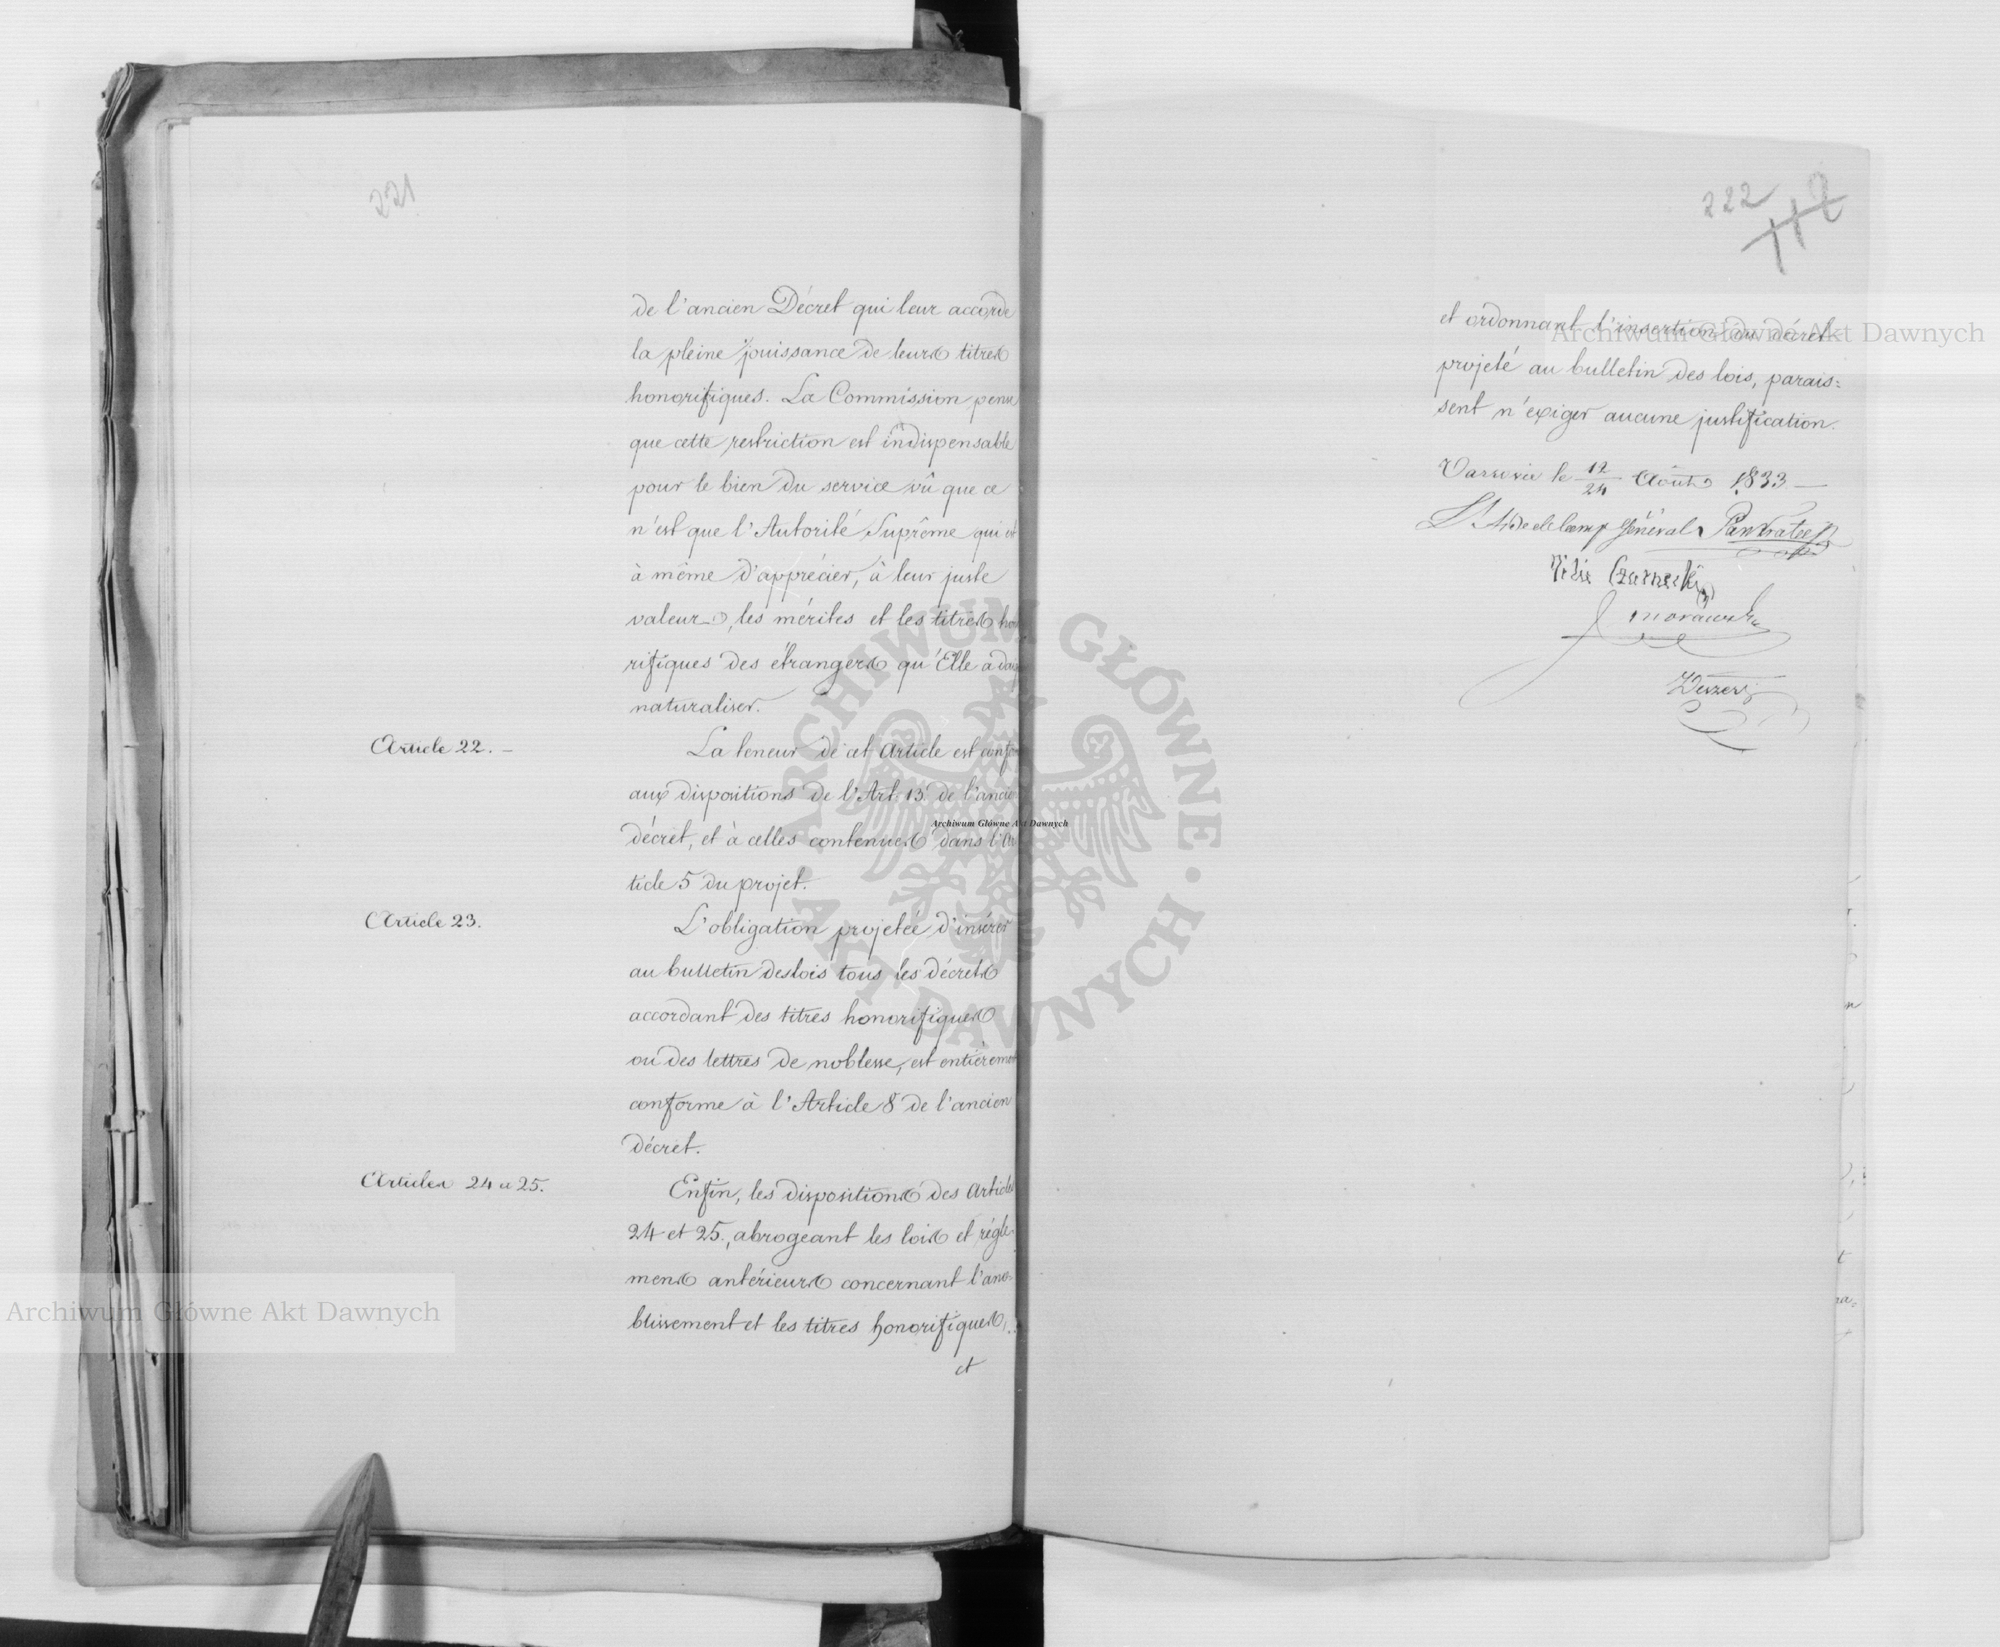 221
de l'ancien Décret qui leur accorde
la pleine jouissance de leurs titres
honorifiques. La Commission pense
que cette restriction est indispensable
pour le bien du service vû que ce
n'est que l'Autorité Suprême qui est
à même d'apprécier, à leur juste
valeur, les mérites et les titres ho
rifiques des étrangers qu'Elle a
naturaliser.
Article 22. –
La teneur de cet Article est confor
aux dispositions de l'Art. 13. de l'ancien
décret, et à celles contenues dans l'Ar
ticle 5 du projet.
Article 23.
L'obligation projetée d'insérer
au bulletin des lois tous les décrets
accordant des titres honorifiques
ou des lettres de noblesse, est entièrement
conforme à l'Article 8 de l'ancien
décret.
Articles 24 a 25.
Enfin, les dispositions des Articles
24 et 25., abrogeant les lois et régle-
mens antérieurs concernant l'ano-
blissement et les titres honorifiques,
et
222
112
et ordonnant l'insertion du décret
projeté au bulletin des lois, parais=
sent n'exiger aucune justification.
Varsovie le 12/24 Août 1833 —
L'Aide de Camp Général Pankratieff
Czarnecki
Morawski
Archiwum Główne Akt Dawnych
ARCHIWUM GŁÓWNE • AKT DAWNYCH •
Archiwum Główne Akt Dawnych
Archiwum Główne Akt Dawnych